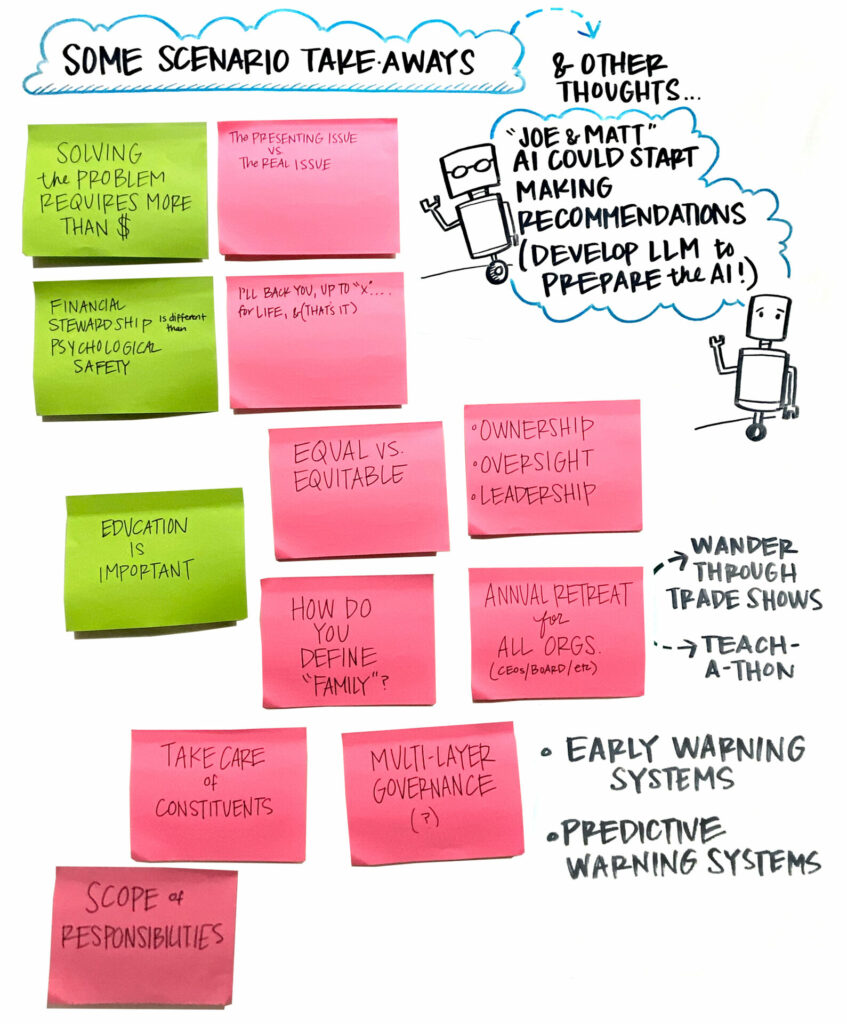 SOME SCENARIO TAKE-AWAYS
& OTHER
THOUGHTS...
"JOE & MATT"
AI COULD START
MAKING
RECOMMENDATIONS
(DEVELOP LLM to
PREPARE the AI!)
SOLVING
the PROBLEM
REQUIRES MORE
THAN $
The PRESENTING ISSUE
VS.
The REAL ISSUE
FINANCIAL
STEWARDSHIP is different than
PSYCHOLOGICAL
SAFETY
I'LL BACK YOU, UP TO "X"....
for LIFE, & (THAT'S IT)
EQUAL VS.
EQUITABLE
• OWNERSHIP
• OVERSIGHT
• LEADERSHIP
EDUCATION
IS
IMPORTANT
HOW DO
YOU
DEFINE
"FAMILY"?
ANNUAL RETREAT
for
ALL ORGS.
(CEOs/BOARD/etc)
WANDER
THROUGH
TRADE SHOWS
TEACH-
A-THON
TAKE CARE
of
CONSTITUENTS
MULTI-LAYER
GOVERNANCE
(?)
• EARLY WARNING
SYSTEMS
• PREDICTIVE
WARNING SYSTEMS
SCOPE of
RESPONSIBILITIES